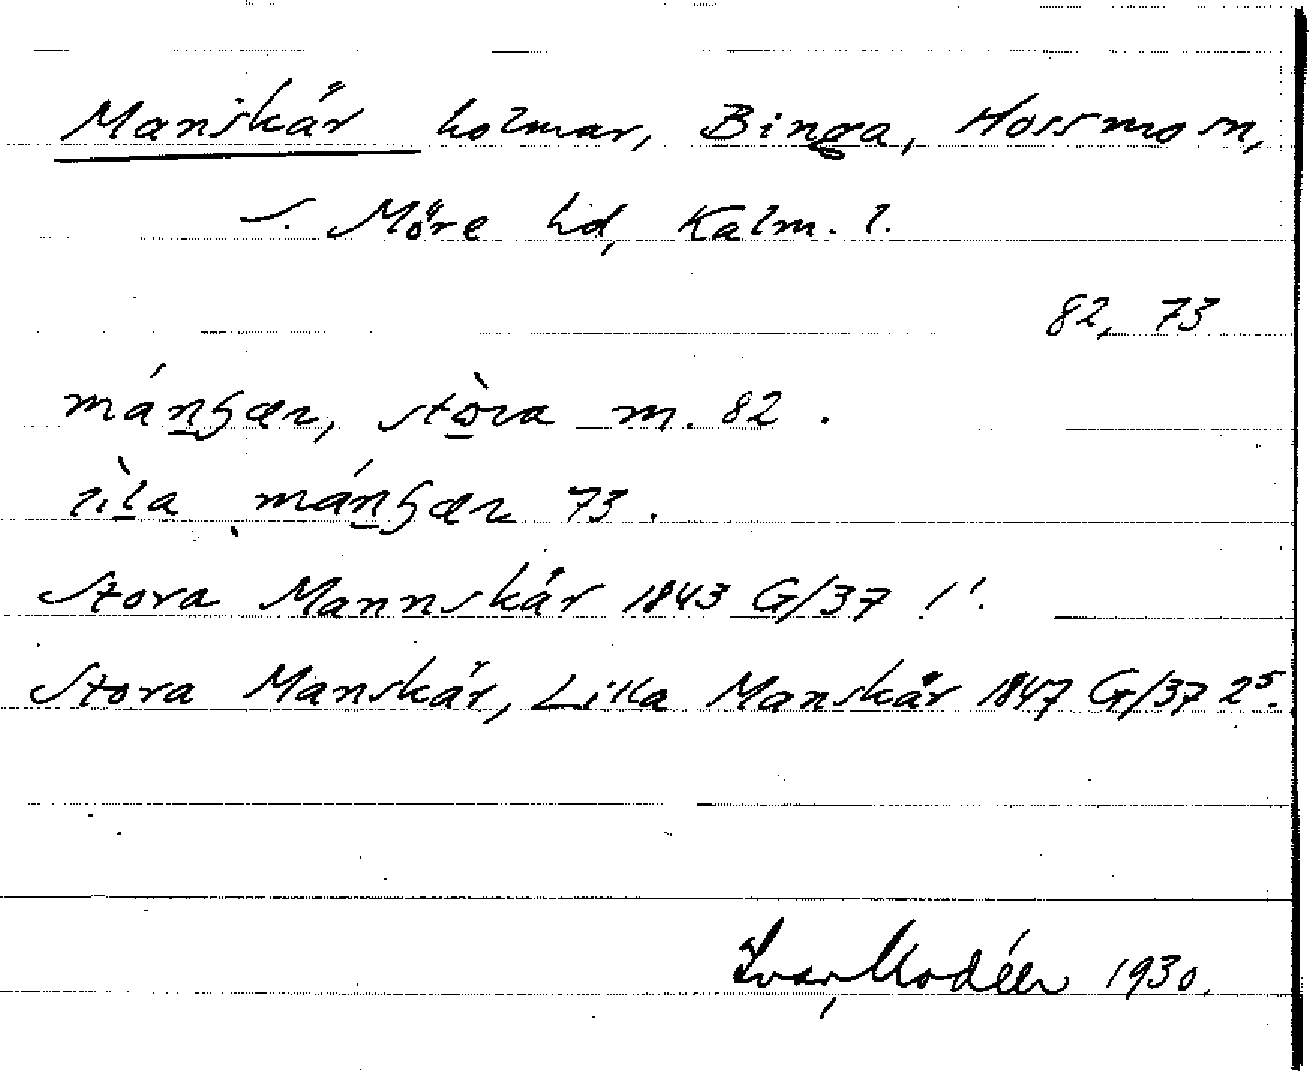 Manskär holmar, Binga, Hossmo sn,
S. Möre hd, Kalm. l.
82, 73
stòra m. 82.
73.
Stora Mannskär 1843 G/37 1'.
Stora Manskär, Lilla Manskär 1847 G/37 2⁵.
Ivar Modéer 1930.